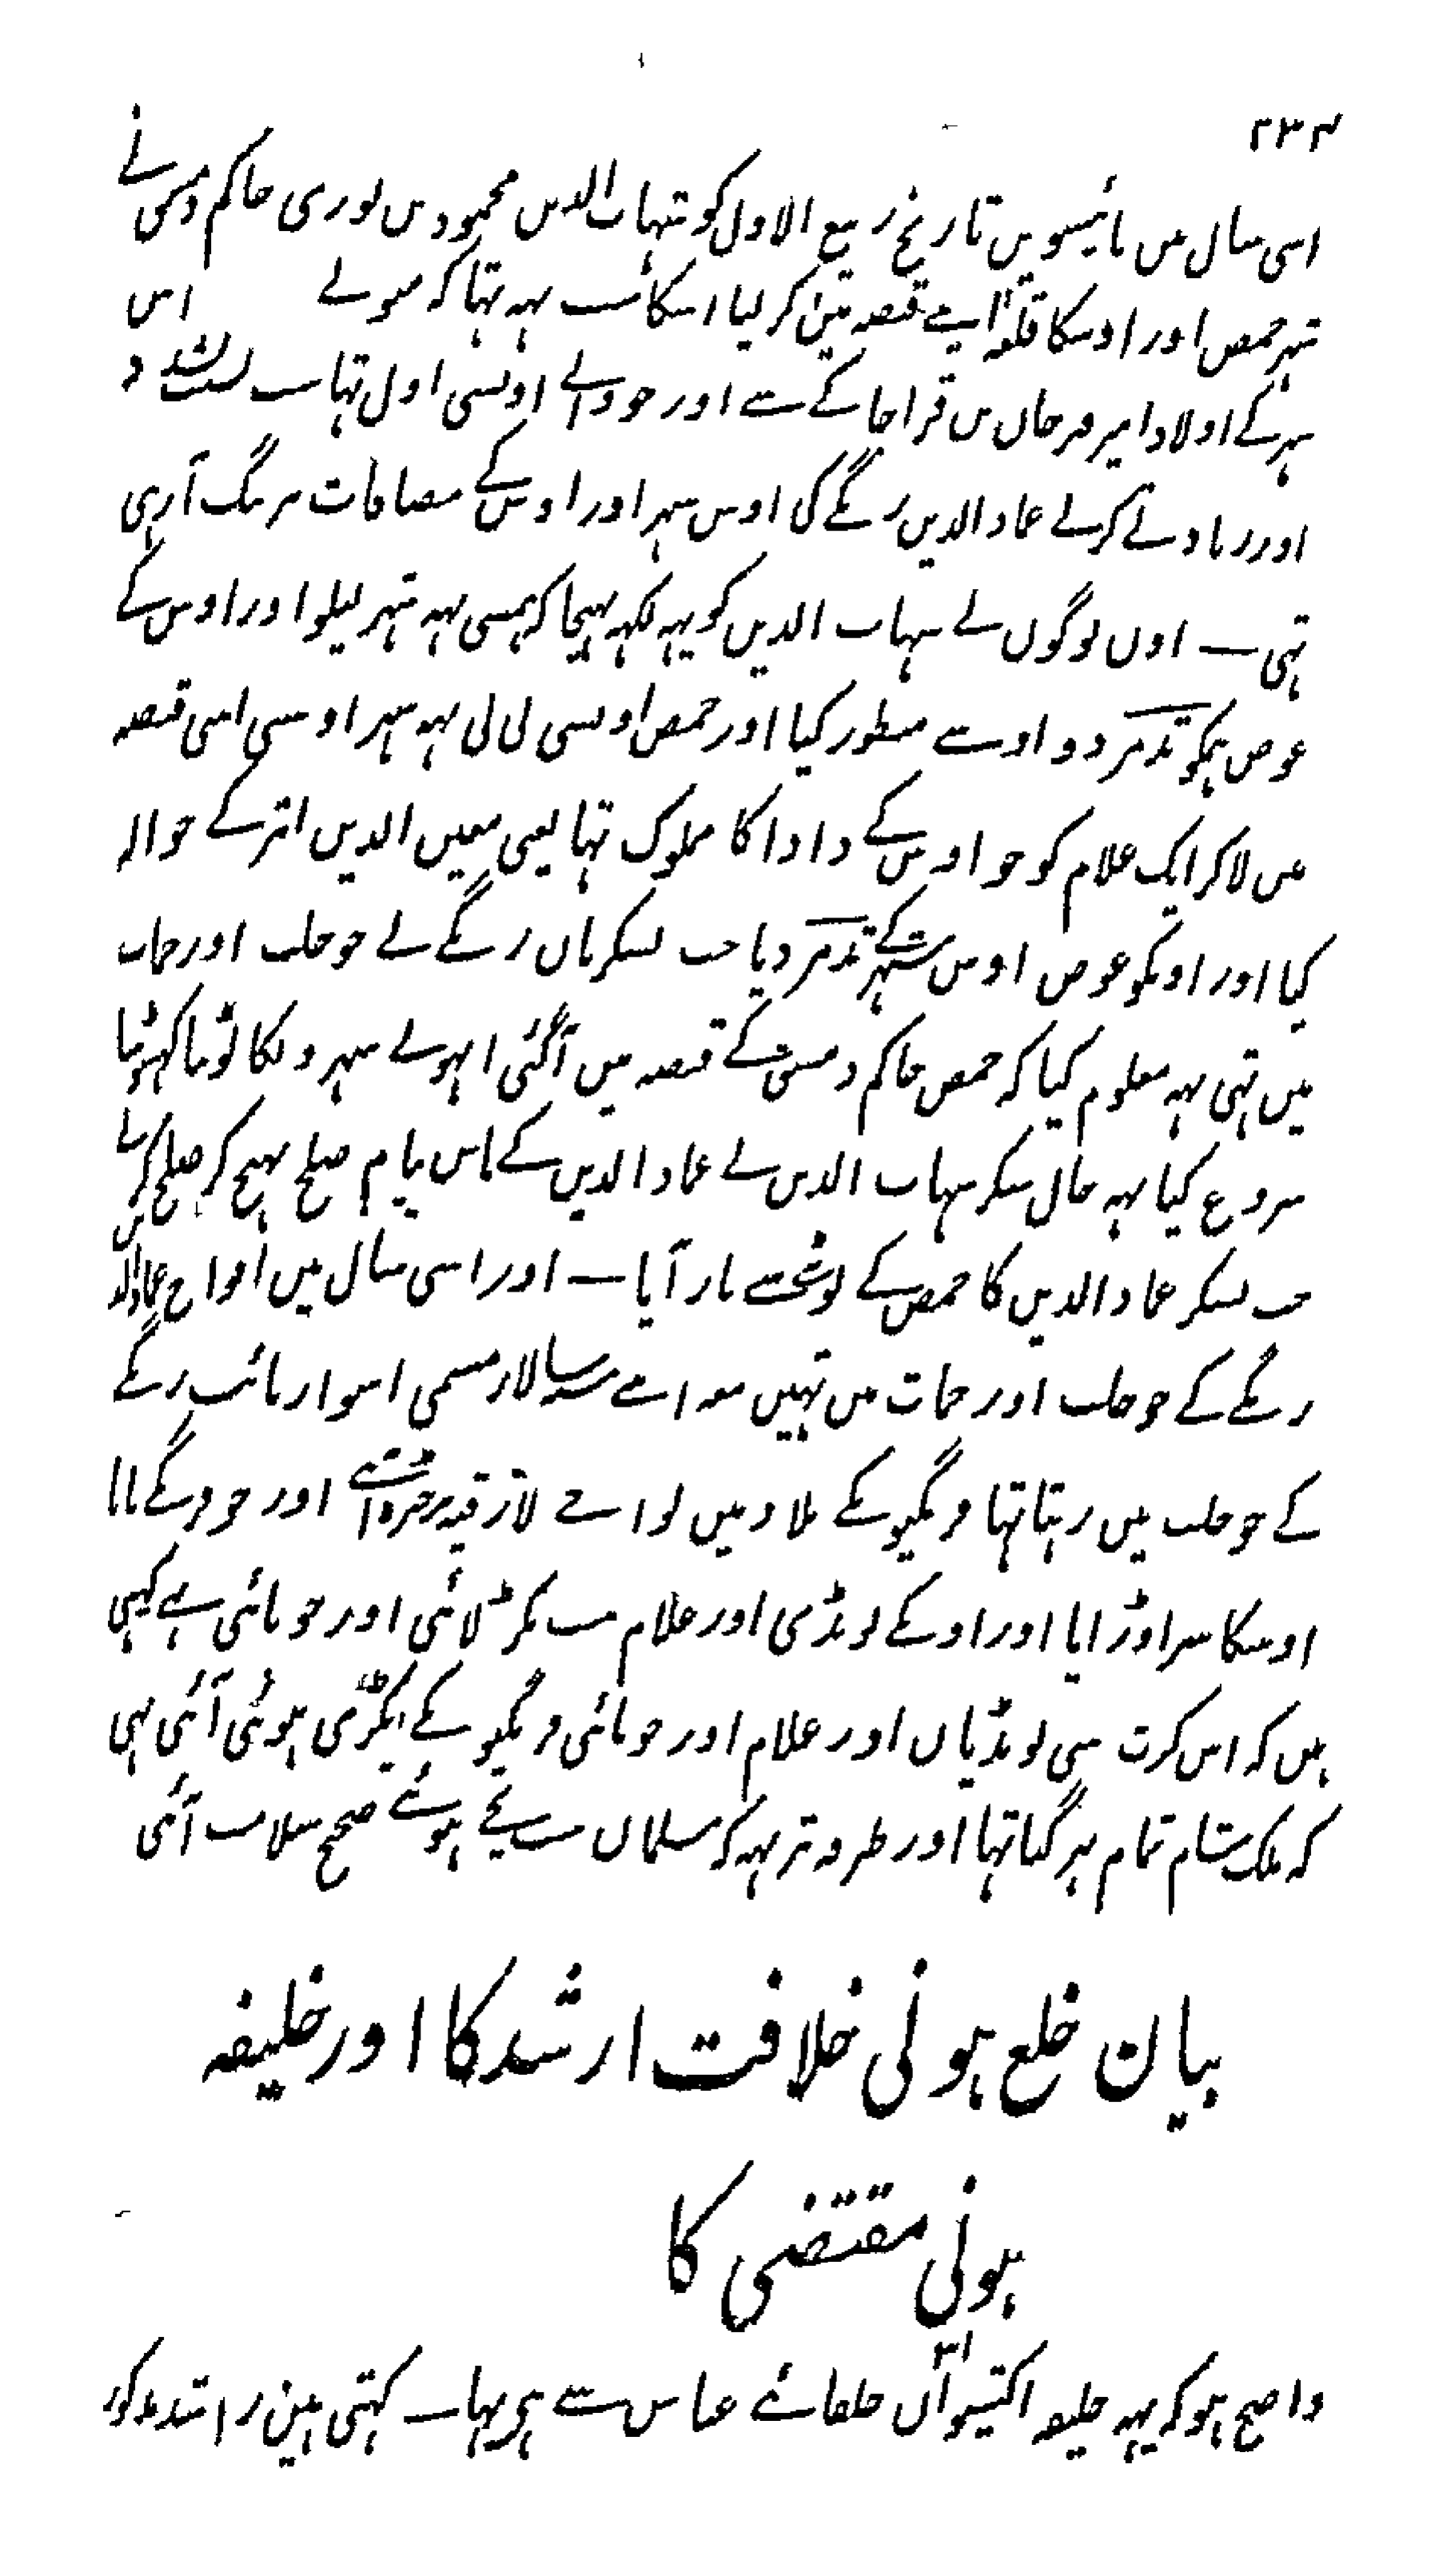 ۲۳۴
اسی سال میں بائیسویں تاریخ ربیع الاول کو شہاب الدین محمود بن بوری حاکم دمشق نے
شہر حمص اور اوسکا قلعہ اپنے قبضہ میں کر لیا اسکا سبب یہہ تہا کہ مولے اس
شہر کے اولاد امیر قرجان بن قراجا کے سے اور جو والے اونسی اول تہا بسبب تشدد
اور زیادتے کرنے عماد الدین زنگے کی اوس شہر اور اوس کے مضافات پر تنگ آرہی
تہی — اون لوگوں نے شہاب الدین کو یہہ لکہہ بہیجا کہ ہمسی یہہ شہر لیلو اور اوس کے
عوض ہمکو تدمر دو اوسے منظور کیا اور حمص اونسی لی لی یہہ شہر اوسی اسی قبضہ
میں لاکر ایک غلام کو جو اوس کے دادا کا مملوک تہا یعنی معین الدین انز کے حوالہ
کیا اور اونکو عوض اوس شہر کے تدمر دیا جب لشکریاں زنگے نے جو حلب اور حماب
میں تہی یہہ معلوم کیا کہ حمص حاکم دمشق کے قبضہ میں آگئی انہوں نے شہر ونکا لوٹنا کہوٹنا
شروع کیا یہہ حال سنکر شہاب الدین نے عماد الدین کے پاس پیام صلح بہیج کر صلح کرلی
تب لشکر عماد الدین کا حمص کے لوٹنے سے باز آیا — اور اسی سال میں افواج عماد الدین
زنگے کے جو حلب اور حمات میں تہیں معہ اپنے سپہ سالار مسمی اسوار نائب زنگے
کے جو حلب میں رہتا تہا فرنگیو کے بلاد میں نواحے لازقیہ پر چڑھ گئے اور جو فرنگے پایا
اوسکا سر اوڑایا اور اونکے لونڈی اور غلام سب پکڑ لائی اور جو پائی ہے کہی
ہیں کہ اس کثرت سی لونڈیاں اور غلام اور چوپائی فرنگیو کے پکڑی ہوئی آئی تہی
کہ ملک شام تمام بہر گیا تہا اور طرفہ تر یہہ کہ مسلماں سب بچے ہوئے صحیح سلامت آئی
بیان خلع ہونی خلافت ارشد کا اور خلیفہ
ہونی مقتضی کا
واضح ہو کہ یہہ خلیفہ اکتیسواں ۳۱ خلفائے عباس سے ہی یہاں کہتی ہین راشد مذکور